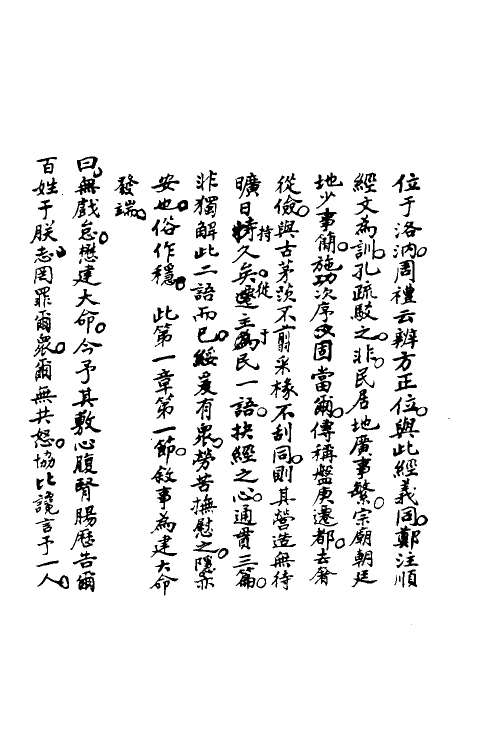 位于洛汭。周禮云辨方正位。與此經義同。鄭注順
經文為訓。孔疏駁之。非。民居地廣事繁。宗廟朝廷
地少事簡。施功次序固當爾。傳稱盤庚遷都。去奢
從儉。與古茅茨不翦采椽不刮同。則其營造無待
曠日持久矣。遷主於為民一語。抉經之心。通貫三篇。
非獨解此二語而已。綏爰有眾。勞苦撫慰之。隱亦
安也。俗作穩。 此第一章第一節。敘事為建大命
發端。
曰。無戲怠。懋建大命。今予其敷心腹腎腸歷告爾
百姓于朕志。罔罪爾眾。爾無共怒。協比讒言予一人。